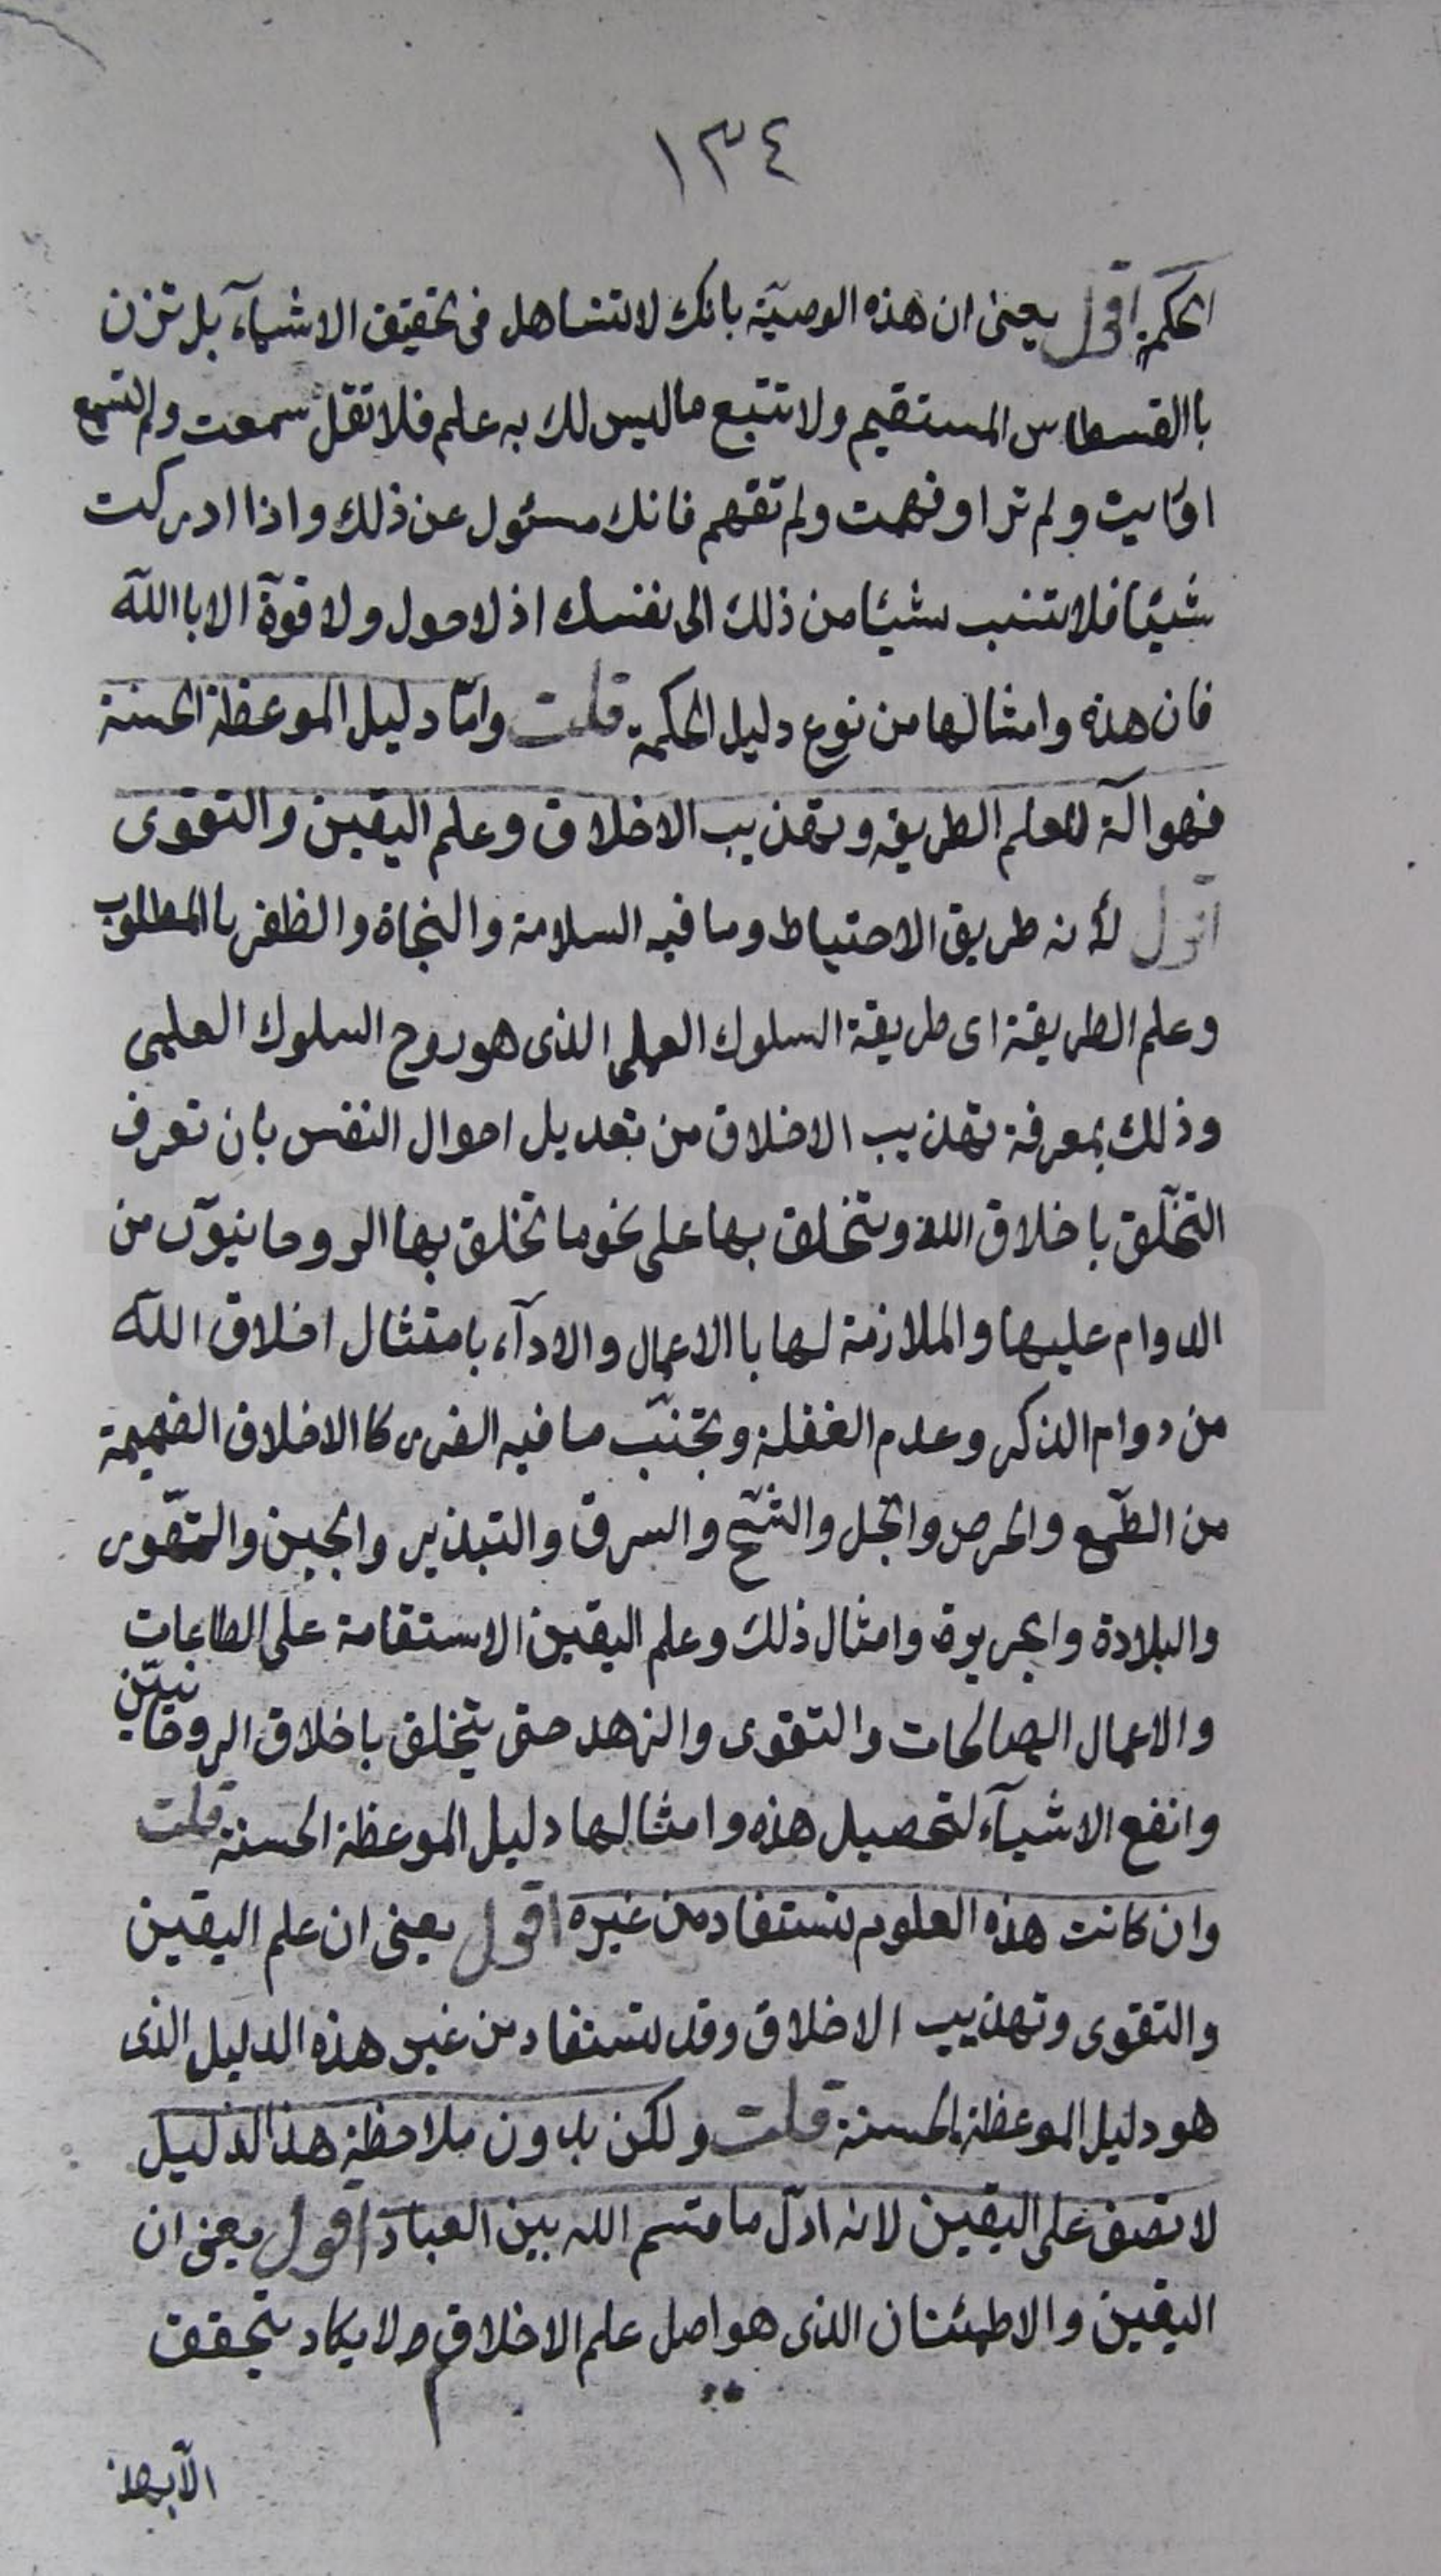 ١٣٤
الحكمة اقول يعنى ان هذه الوصيّة بانك لا تتساهل فى تحقيق الاشيآء بل تزن
باالقسطاس المستقيم ولا تتبع ماليس لك به علم فلا تقل سمعت ولم تسمع
او رايت ولم تر او فهمت ولم تفهم فانك مسئول عن ذلك واذا ادركت
شيئا فلا تنسب شيئا من ذلك الى نفسك اذ لا حول ولا قوّة الا باالله
فان هذه وامثالها من نوع دليل الحكمة قلت وامّا دليل الموعظة الحسنة
فهو الة لعلم الطريقه وتهذيب الاخلاق وعلم اليقين والتقوى
اقول لأنه طريق الاحتياط وما فيه السلامة والنجاة والظفر باالمطلوب
وعلم الطريقة اى طريقة السلوك العملى الذى هو روح السلوك العلمى
وذلك بمعرفة تهذيب الاخلاق من تعديل احوال النفس بان تعرف
التخلّق باخلاق الله وتتخلق بها على نحو ما تخلق بها الروحانيوّن من
الدوام عليها والملازمة لها باالاعمال والادآء بامتثال اخلاق الله
من دوام الذكر وعدم الغفلة وتجنّب ما فيه الضرر كاالاخلاق الذميمة
من الطّمع والحرص والبخل والشّح والسرق والتبذير والجبن والتهّور
والبلادة والجربوة وامثال ذلك وعلم اليقين الاستقامة على الطاعات
والاعمال الصالحات والتقوى والزهد حتى يتخلق باخلاق الروحانييّن
وانفع الاشيآء لتحصيل هذه وامثالها دليل الموعظة الحسنة قلت
وان كانت هذه العلوم تستفاد من غيره اقول يعنى ان علم اليقين
والتقوى وتهذيب الاخلاق وقد تستفاد من غير هذه الدليل الذى
هو دليل الموعظة الحسنة قلت ولكن بدون ملاحظة هذا الدليل
لا تقف على اليقين لانه اقلّ ما قسم الله بين العباد اقول يعنى ان
اليقين والاطمئنان الذى هو اصل علم الاخلاق ولا يكاد يتحقق
الاّ بهذ